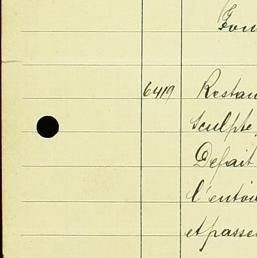 Fou
6419 Restau
Sculpte
Défait
l'entou
et passe